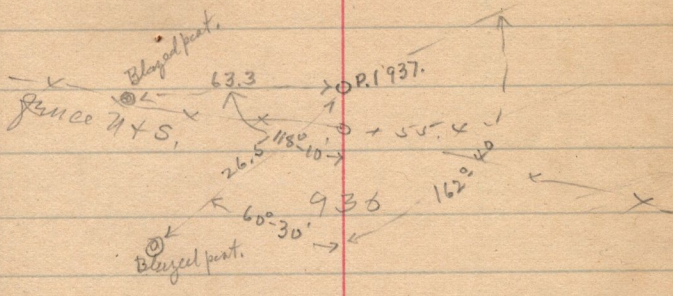 Blazed post.
63.3
P.1937.
fence N + S.
118°-10'
+ 55.4
26.5
162° 40
936
60°-30'
Blazed post.